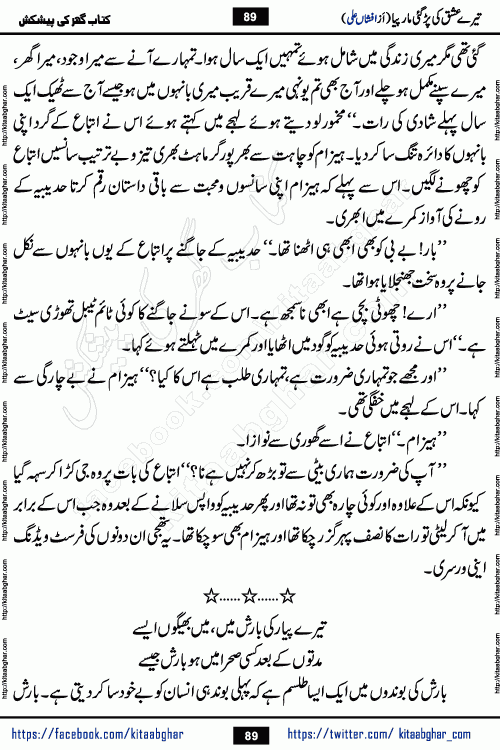 تیرے عشق کی پڑ گئی مار پیا (از افشاں علی) 89 کتاب گھر کی پیشکش
گئی تھی مگر میری زندگی میں شامل ہوئے تمہیں ایک سال ہوا۔ تمہارے آنے سے میرا وجود، میرا گھر،
میرے سپنے مکمل ہو چلے اور آج بھی تم یونہی میرے قریب میری بانہوں میں ہو جیسے آج سے ٹھیک ایک
سال پہلے شادی کی رات۔‘‘ مخمور لو دیتے ہوئے لہجے میں کہتے ہوئے اس نے اتباع کے گرد اپنی
بانہوں کا دائرہ تنگ سا کر دیا۔ ہیزام کو چاہت سے بھرپور گرماہٹ بھری تیز و بے ترتیب سانسیں اتباع
کو چھونے لگیں۔ اس سے پہلے کہ ہیزام اپنی سانسوں و محبت سے باقی داستان رقم کرتا حدیبیہ کے
رونے کی آواز کمرے میں ابھری۔
’’یار! بے بی کو بھی ابھی ہی اٹھنا تھا۔‘‘ حدیبیہ کے جاگنے پر اتباع کے یوں بانہوں سے نکل
جانے پر وہ سخت جھنجلایا ہوا تھا۔
’’ارے! چھوٹی بچی ہے ابھی ناسمجھ ہے۔ اس کے سونے جاگنے کا کوئی ٹائم ٹیبل تھوڑی سیٹ
ہے۔‘‘ اس نے روتی ہوئی حدیبیہ کو گود میں اٹھایا اور کمرے میں ٹہلتے ہوئے کہا۔
’’اور مجھے جو تمہاری ضرورت ہے، تمہاری طلب ہے اس کا کیا؟‘‘ ہیزام نے بے چارگی سے
کہا۔ اس کے لہجے میں خفگی تھی۔
’’ہیزام۔‘‘ اتباع نے اسے گھوری سے نوازا۔
’’آپ کی ضرورت ہماری بیٹی سے تو بڑھ کر نہیں ہے نا؟‘‘ اتباع کی بات پر وہ جی کڑا کر سہہ گیا
کیونکہ اس کے علاوہ اور کوئی چارہ بھی تو نہ تھا اور پھر حدیبیہ کو واپس سلانے کے بعد وہ جب اس کے برابر
میں آ کر لیٹی تو رات کا نصف پہر گزر چکا تھا اور ہیزام بھی سو چکا تھا۔ یہ تھی ان دونوں کی فرسٹ ویڈنگ
اینی ورسری۔
☆......☆......☆
تیرے پیار کی بارش میں، میں بھیگوں ایسے
مدتوں کے بعد کسی صحرا میں ہو بارش جیسے
بارش کی بوندوں میں ایک ایسا طلسم ہے کہ پہلی بوند ہی انسان کو بے خود سا کر دیتی ہے۔ بارش
https://facebook.com/kitaabghar 89 https://twitter.com/kitaabghar_com